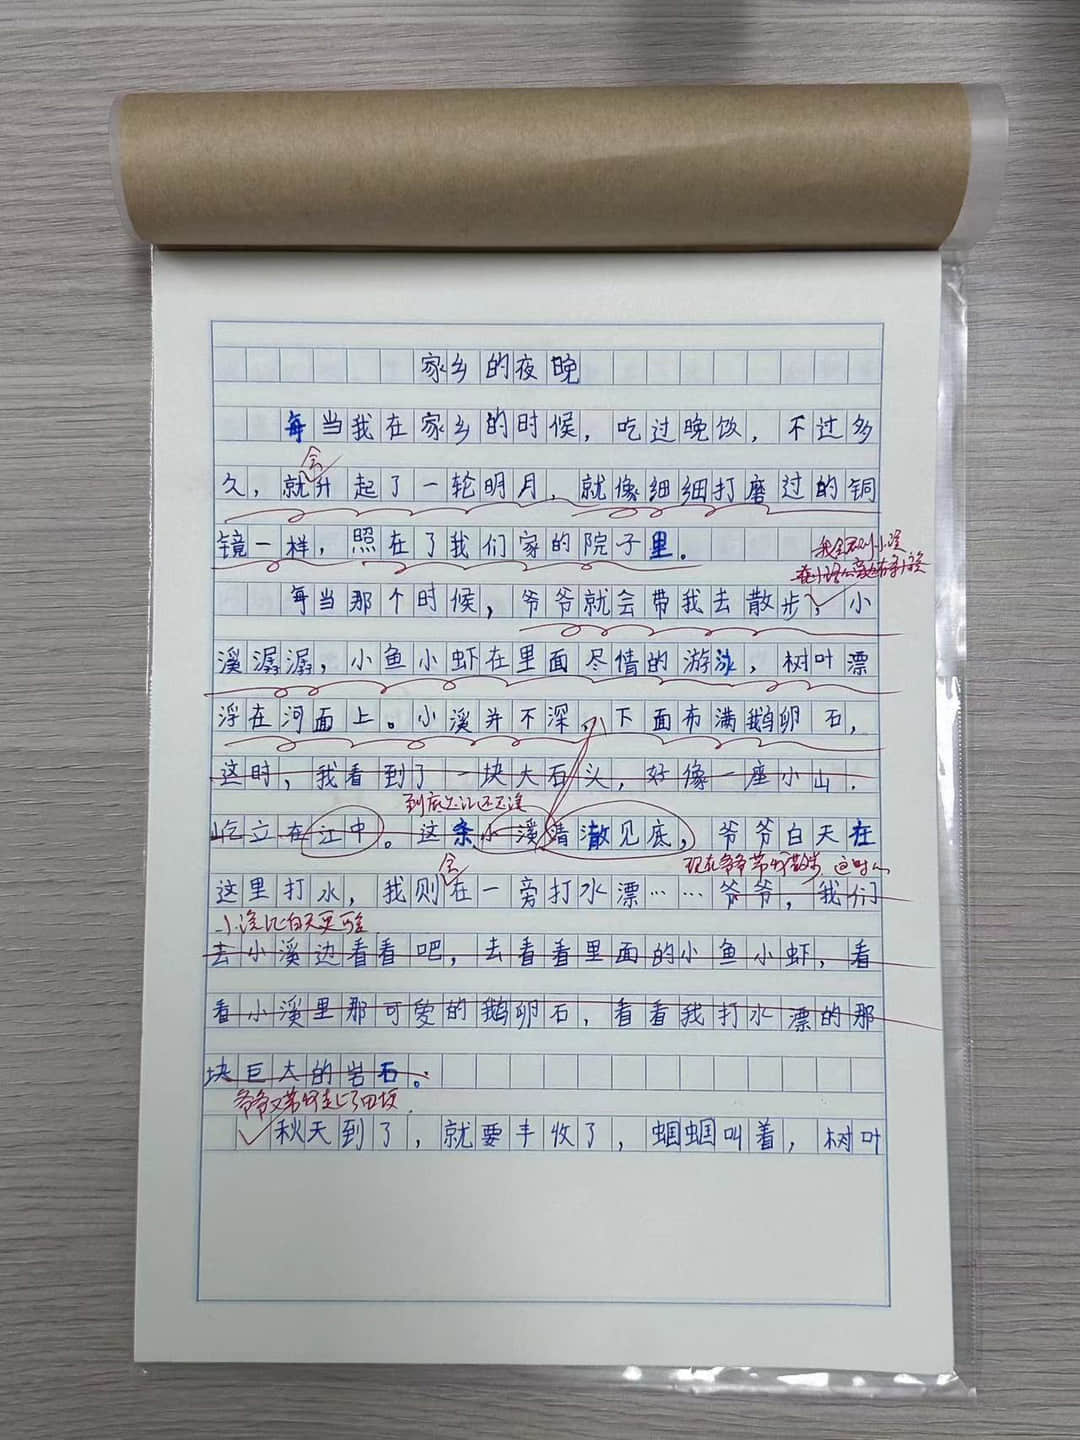 家乡的夜晚
每当我在家乡的时候，吃过晚饭，不过多
会
久，就升起了一轮明月，就像细细打磨过的铜
镜一样，照在了我们家的院子里。
每当那个时候，爷爷就会带我去散步，小
溪潺潺，小鱼小虾在里面尽情的游泳，树叶漂
浮在河面上。小溪并不深，下面布满鹅卵石，
这时，我看到了一块大石头，好像一座小山，
屹立在江中。这条小溪清澈见底，爷爷白天在
会
这里打水，我则在一旁打水漂……爷爷，我们
小溪比白天更
去小溪边看看吧，去看看里面的小鱼小虾，看
看小溪里那可爱的鹅卵石，看看我打水漂的那
块巨大的岩石。
爷爷又带我走上了田埂
秋天到了，就要丰收了，蝈蝈叫着，树叶